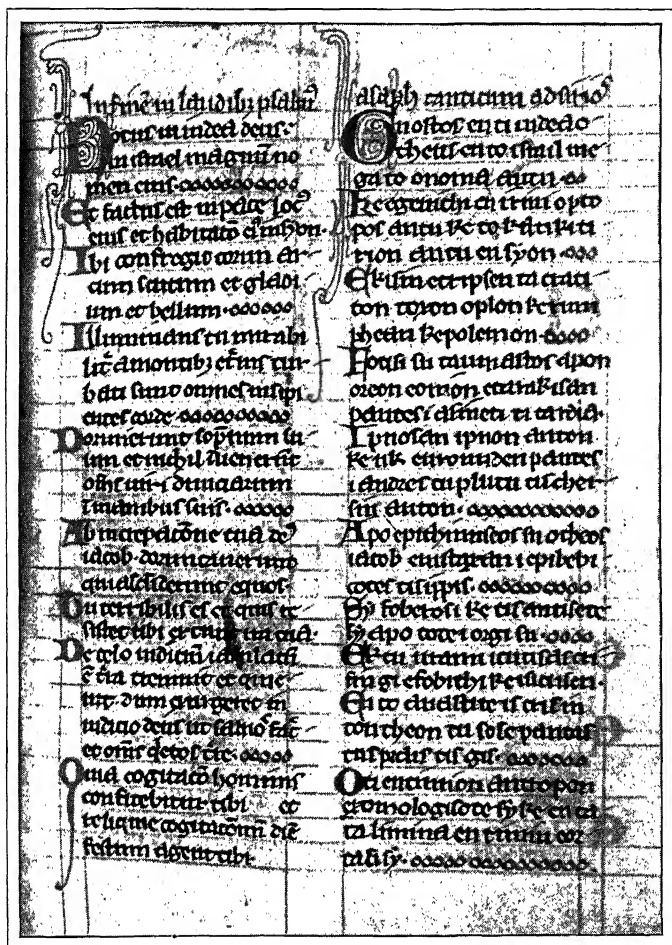 In finē in laudibꝫ psalmꝰ
Notus in iudea deus:
in israel magnū no
men eius.
Et factus est in pace locꝰ
eius et habitatō eiꝰ in syon
Ibi confregit cornu ar
cum scutum et gladi
um et bellum.
Illuminans tu mirabi
lit̄ a montibꝫ et̄nis tur-
bati sunt omnes insipi
entes corde
Dormierunt sopnum su
um et nichil inuenerūt
om̄s uiri diuiciarum
ī manibus suis.
Ab increpatōne tua deꝰ
iacob dormitauerunt
qui ascēderunt equos.
Tu terribilis es et quis re
sistet tibi ex tunc ira tua.
De celo iudiciū
t̄ra tremuit et quie
uit. dum exurgeret in
iudicio deus ut saluos
et om̄s t̄re.
cogitatō hominis
confitebitur tibi et
reliquie cogitatōnū diē
festum agent tibi.
asaph canticum ad
Gnostos en ti iudea o
theus. en to israil me
ga to onoma autu.
Ke egenithi en irini o to
pos autu ke to katikiti
rion autu en syon.
Eki sinetripsen ta crati
ton toxon oplon ke rum
phean ke polemon.
Fotisis su taumastos apon
oreon eonion etarakisan
pantes i asineti ti cardia.
Ipnosan ipnon auton
ke uk euron uden pantes
i andres tu plutu tis cher
sin auton.
Apo epithimiseos su o theos
iacob enistaxan i epibebi
cotes tis ippis.
Sy foberos i ke tis antiste
sy apo tote i orgi su.
Ek tu uranu
gi efobithi ke isicasen.
En to anastine is crisin
ton theon tu sose pantas
tus tis gis.
Oti entimion antropon
exomologisete sy ke en ca
ta limma